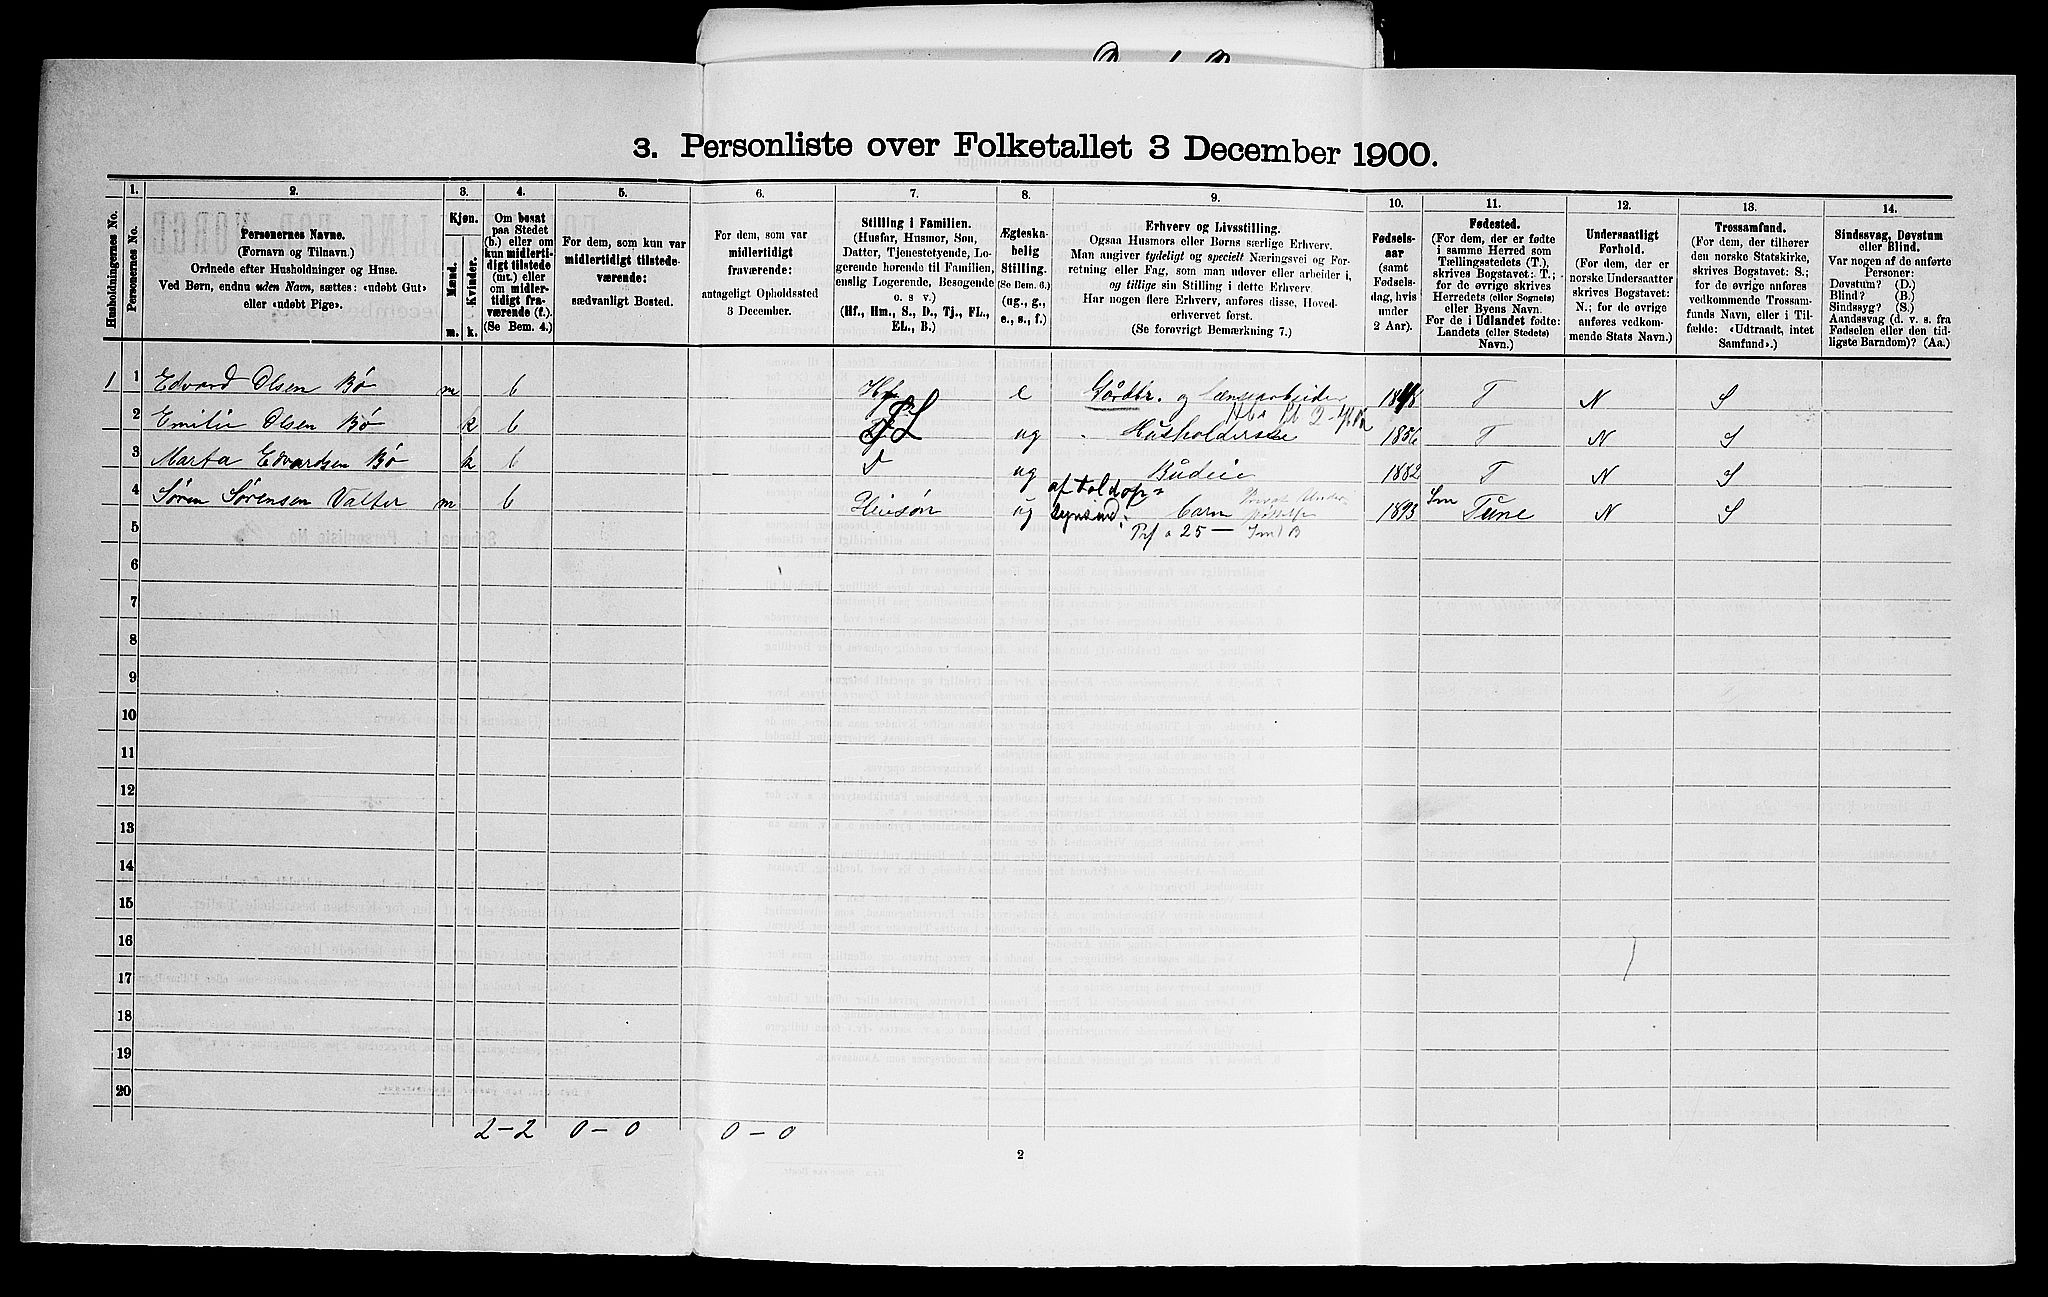 3. Personliste over Folketallet 3 December 1900.
1. 2. 3. 4. 5. 6. 7. 8. 9. 10. 11. 12. 13. 14.
Husholdningernes No.
Personernes No.
Personernes Navne.
(Fornavn og Tilnavn.)
Ordnede efter Husholdninger og Huse.
Ved Børn, endnu uden Navn, sættes: «udøbt Gut»
eller «udøbt Pige».
Kjøn.
Mænd.
Kvinder.
m. k.
Om bosat
paa Stedet
(b.) eller om
kun midlerti-
digt tilstede
(mt.) eller
om midler-
tidigt fra-
værende (f.).
(Se Bem. 4.)
For dem, som kun var
midlertidigt tilstede-
værende:
sædvanligt Bosted.
For dem, som var
midlertidigt
fraværende:
antageligt Opholdssted
3 December.
Stilling i Familien.
(Husfar, Husmor, Søn,
Datter, Tjenestetyende, Lo-
gerende hørende til Familien,
enslig Logerende, Besøgende
o. s v.)
(Hf., Hm., S., D., Tj., FL.,
EL., B.)
Ægteska-
belig
Stilling.
(Se Bem. 6.)
(ug., g.,
e., s., f.)
Erhverv og Livsstilling.
Ogsaa Husmors eller Børns særlige Erhverv.
Man angiver tydeligt og specielt Næringsvei og For-
retning eller Fag, som man udøver eller arbeider i,
og tillige sin Stilling i dette Erhverv.
Har nogen flere Erhverv, anføres disse, Hoved-
erhvervet først.
(Se forøvrigt Bemærkning 7.)
Fødsels-
aar
(samt
Fødsels-
dag, hvis
under
2 Aar).
Fødested.
(For dem, der er fødte
i samme Herred som
Tællingsstedet (T.),
skrives Bogstavet: T.;
for de øvrige skrives
Herredets (eller Sognets)
eller Byens Navn.
For de i Udlandet fødte:
Landets (eller Stedets)
Navn.)
Undersaatligt
Forhold.
(For dem, der er
norske Undersaatter
skrives Bogstavet:
N.; for de øvrige
anføres vedkom-
mende Stats Navn.)
Trossamfund.
(For dem, der tilhører
den norske Statskirke,
skrives Bogstavet: S.;
for de øvrige anføres
vedkommende Trossam-
funds Navn, eller i Til-
fælde: «Udtraadt, intet
Samfund».)
Sindssvag, Døvstum
eller Blind.
Var nogen af de anførte
Personer:
Døvstum? (D.)
Blind? (B.)
Sindssyg? (S.)
Aandssvag (d. v. s. fra
Fødselen eller den tid-
ligste Barndom)? (Aa.)
1 1 Edvard Olsen Bø m b Hf e Gårdbr. og Lænsearbeider 1848 T N S
2 Emilie Olsen Bø k b ug Husholderske 1856 T N S
3 Marta Edvardsen Bø k b D ug Budeie 1882 T N S
4 Søren Sørensen Valter m b Heisøn ug barn 1893 Tune N S
5
6
7
8
9
10
11
12
13
14
15
16
17
18
19
20
2–2 0–0 0–0
2